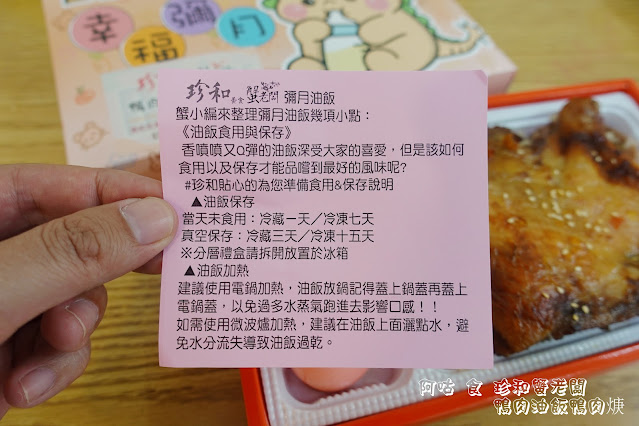 幸福彌月
珍和美食 蟹老闆 彌月油飯
蟹小編來整理彌月油飯幾項小點：
《油飯食用與保存》
香噴噴又Q彈的油飯深受大家的喜愛，但是該如何
食用以及保存才能品嚐到最好的風味呢?
#珍和貼心的為您準備食用&保存說明
▲油飯保存
當天未食用：冷藏一天／冷凍七天
真空保存：冷藏三天／冷凍十五天
※分層禮盒請拆開放置於冰箱
▲油飯加熱
建議使用電鍋加熱，油飯放鍋記得蓋上鍋蓋再蓋上
電鍋蓋，以免過多水蒸氣跑進去影響口感！！
如需使用微波爐加熱，建議在油飯上面灑點水，避
免水分流失導致油飯過乾。
阿咕 食 珍和蟹老闆
鴨肉油飯鴨肉焿